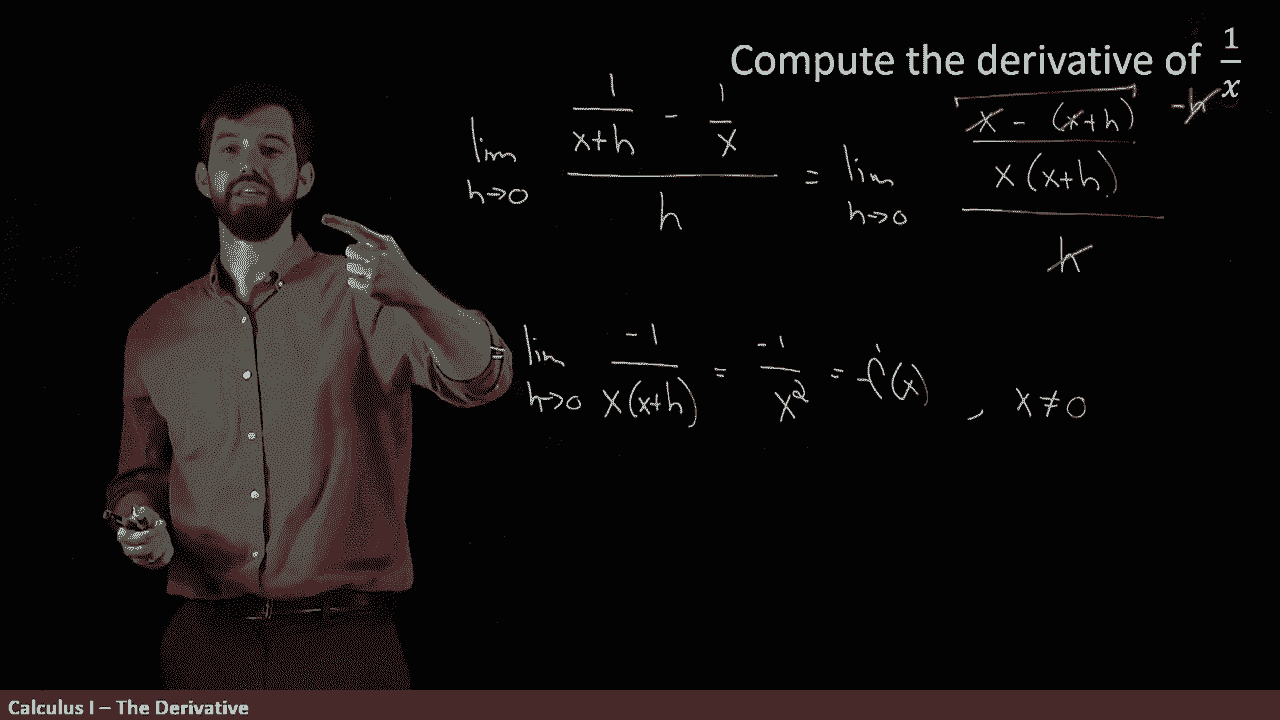 Compute the derivative of 1/x
lim h→0 (1/(x+h) - 1/x)/h = lim h→0 ((x - (x+h))/(x(x+h)))/h -h
lim h→0 -1/(x(x+h)) = -1/x² = f'(x) , x ≠ 0
Calculus I – The Derivative